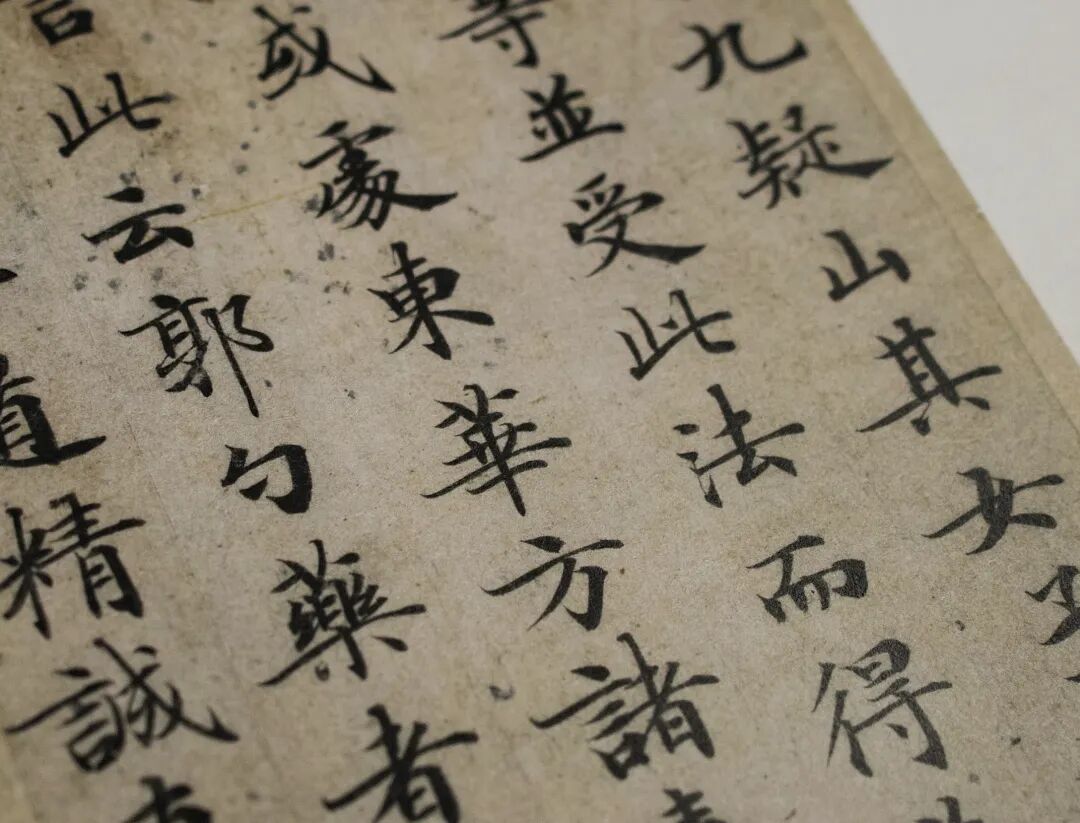 九疑山其女
等並受此法而得
或處東華方諸
言此云郭勺藥者
道精誠